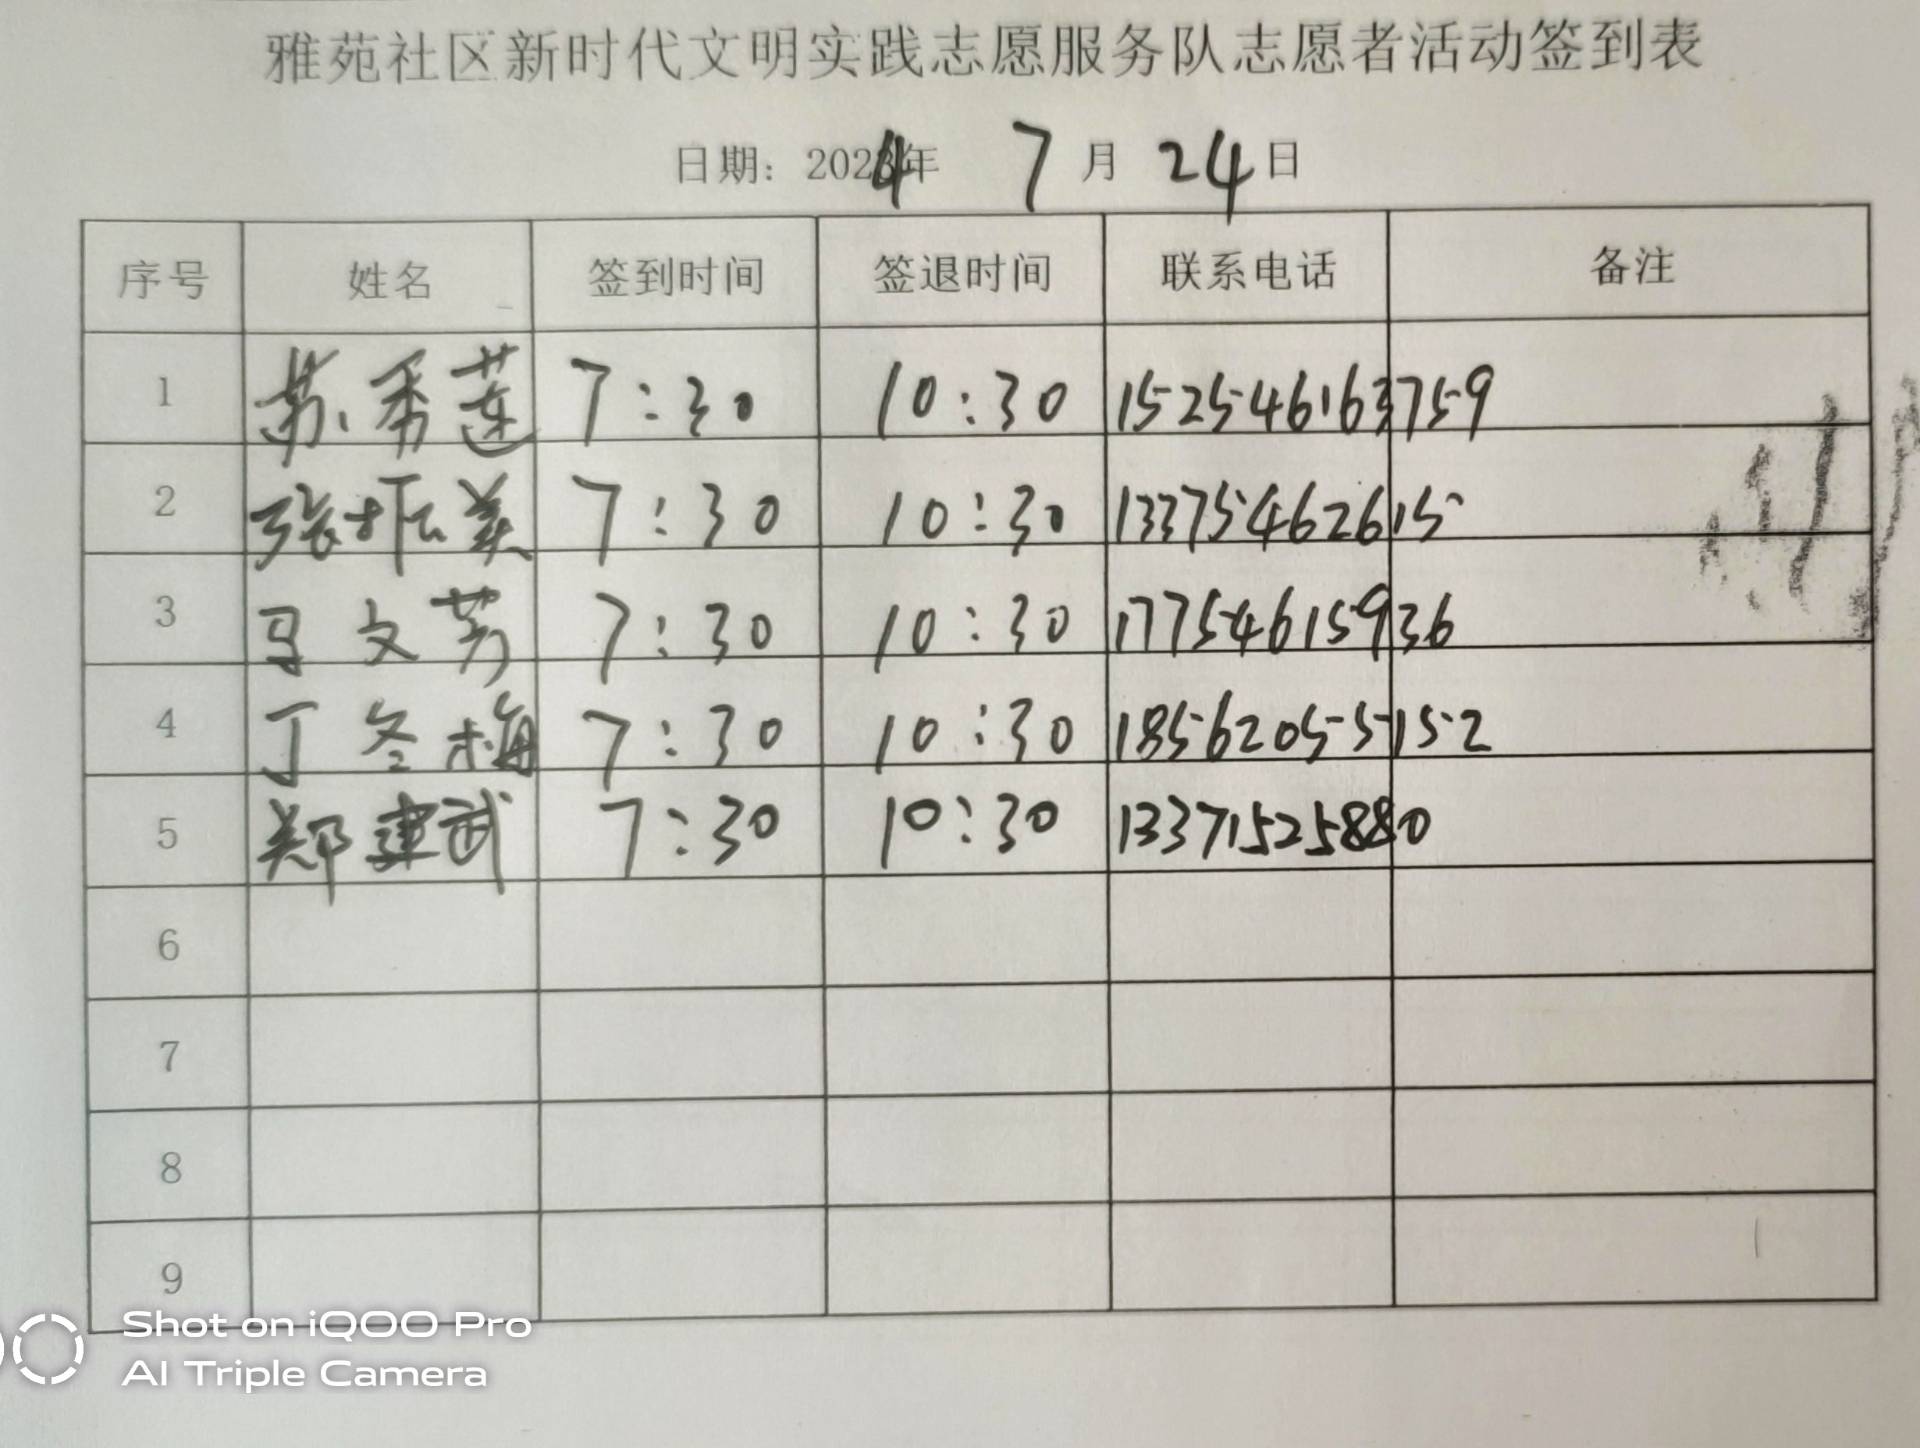 雅苑社区新时代文明实践志愿服务队志愿者活动签到表
日期：2024年 7月 24日
序号 姓名 签到时间 签退时间 联系电话 备注
1 苏秀莲 7:30 10:30 152546163759
2 张振美 7:30 10:30 13375462615
3 马文芳 7:30 10:30 17754615936
4 丁冬梅 7:30 10:30 18562055152
5 郑建武 7:30 10:30 13371525880
6
7
8
9
Shot on iQOO Pro
AI Triple Camera